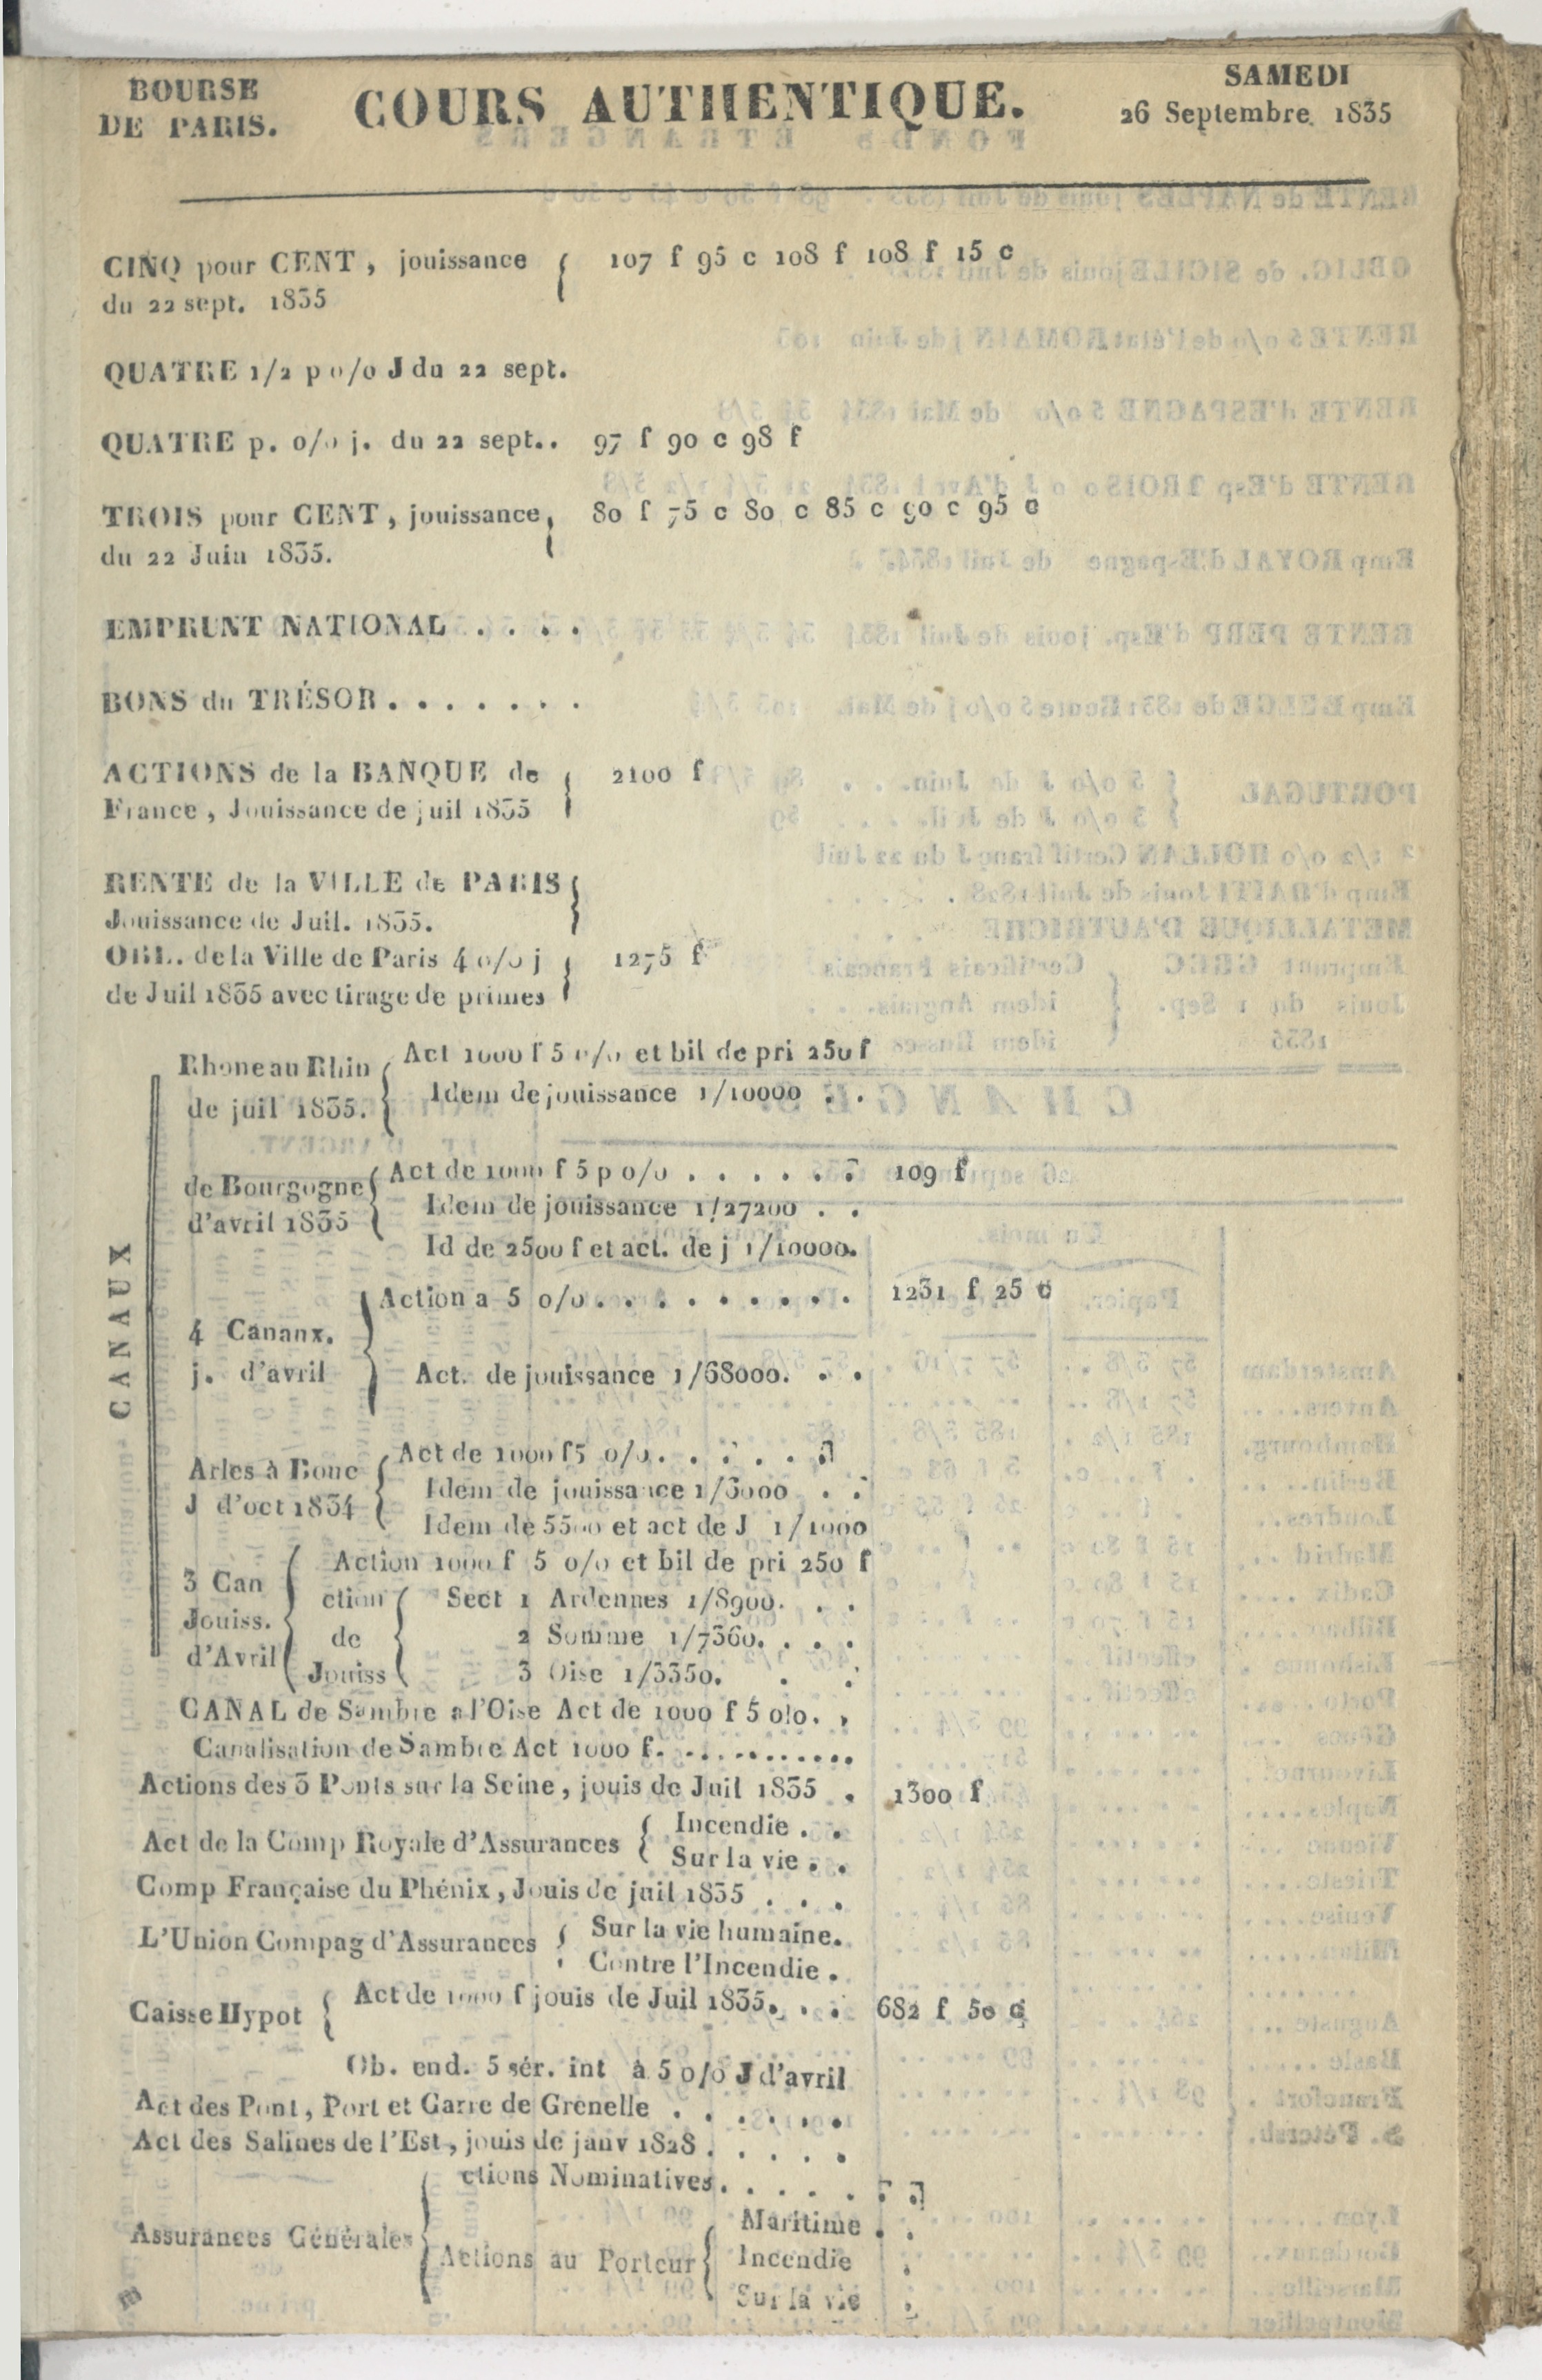 BOURSE
DE PARIS.
COURS AUTHENTIQUE.
SAMEDI
26 Septembre. 1835
CINQ pour CENT, jouissance { 107 f 95 c 108 f 108 f 15 c
du 22 sept. 1835
QUATRE 1/2 p o/o J du 22 sept.
QUATRE p. o/o j. du 22 sept.. 97 f 90 c 98 f
TROIS pour CENT, jouissance, 80 f 75 c 80 c 85 c 90 c 95 c
du 22 Juin 1835.
EMPRUNT NATIONAL . . . .
BONS du TRÉSOR . . . . . . .
ACTIONS de la BANQUE de { 2100 f
France, Jouissance de juil 1835
RENTE de la VILLE de PARIS {
Jouissance de Juil. 1835.
OBL. de la Ville de Paris 4 o/o j { 1275 f
de Juil 1835 avec tirage de primes
CANAUX
Rhone au Rhin { Act 1000 f 5 o/o et bil de pri 250 f
de juil 1835. Idem de jouissance 1/10000 . .
de Bourgogne { Act de 1000 f 5 p o/o . . . . . . 109 f
d'avril 1835 Idem de jouissance 1/27200 . .
Id de 2500 f et act. de j 1/10000.
4 Cananx. { Action a 5 o/o . . . . . . . . . 1231 f 25 c
j. d'avril Act. de jouissance 1/68000. . .
Arles à Bouc { Act de 1000 f5 o/o. . . . . .
J d'oct 1834 Idem de jouissance 1/3000 . .
Idem de 5500 et act de J 1/1000
3 Can { Action 1000 f 5 o/o et bil de pri 250 f
Jouiss. ction { Sect 1 Ardennes 1/8900. . .
d'Avril de 2 Somme 1/7360. . . .
Jouiss 3 Oise 1/3350. . .
CANAL de Sambre a l'Oise Act de 1000 f 5 o!o. ,
Canalisation de Sambre Act 1000 f. ...........
Actions des 3 Ponts sur la Seine, jouis de Juil 1835 . 1300 f
Act de la Comp Royale d'Assurances { Incendie . .
Sur la vie . .
Comp Française du Phénix, Jouis de juil 1835 . . .
L'Union Compag d'Assurances { Sur la vie humaine.
Contre l'Incendie .
Caisse Hypot { Act de 1000 f jouis de Juil 1835. . . 682 f 50 c
Ob. end. 5 sér. int à 5 o/o J d'avril
Act des Pont, Port et Garre de Grenelle . . . . . .
Act des Salines de l'Est, jouis de janv 1828 . . . . .
ctions Nominatives. . . . . . .
Assurances Générales { Actions au Porteur { Maritime . .
Incendie .
Sur la vie .